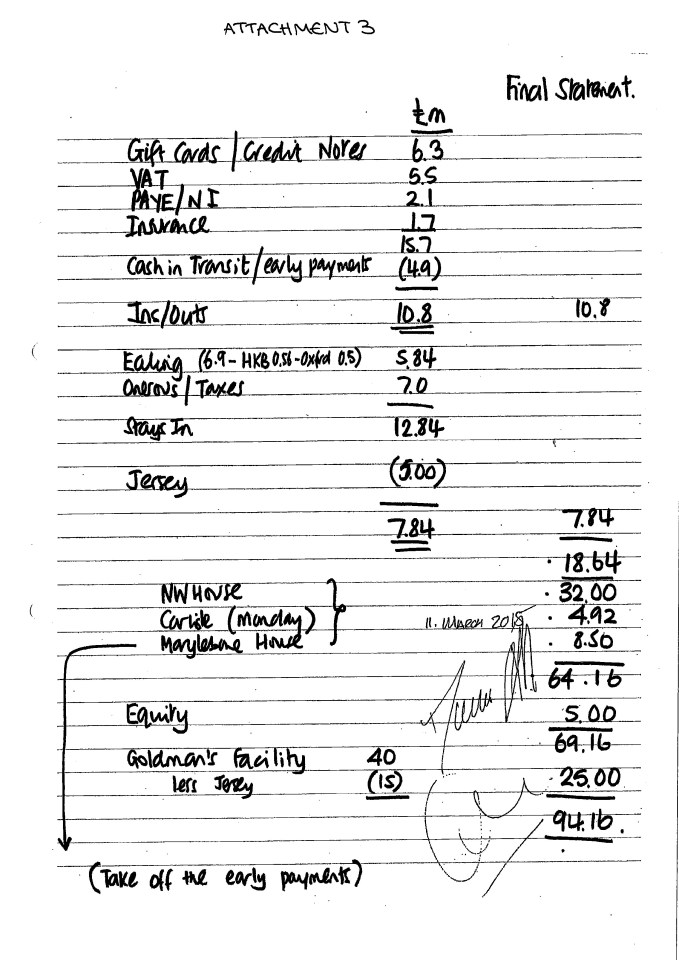 ATTACHMENT 3
Final Statement.
£m
Gift Cards / Credit Notes 6.3
VAT 5.5
PAYE/NI 2.1
Insurance 1.7
15.7
Cash in Transit/early payments (4.9)
Ins/Outs 10.8 10.8
Ealing (6.9-HKB 0.56-Oxfrd 0.5) 5.84
Onerous / Taxes 7.0
Stays In 12.84
Jersey (5.00)
7.84 7.84
18.64
NW House 32.00
Carlisle (Monday) 4.92
11. MARCH 2015
Marylebone House 8.50
64.16
Equity 5.00
69.16
Goldman's Facility 40
less Jersey (15) 25.00
94.16.
(Take off the early payments)